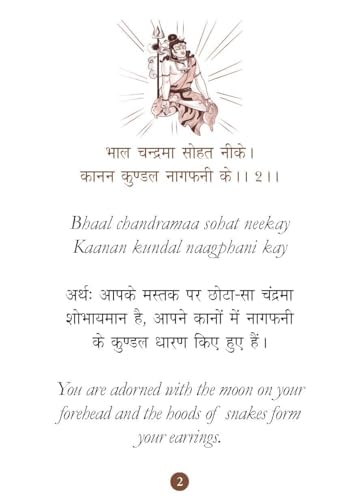 भाल चन्द्रमा सोहत नीके।
कानन कुण्डल नागफनी के।। 2।।
Bhaal chandramaa sohat neekay
Kaanan kundal naagphani kay
अर्थः आपके मस्तक पर छोटा-सा चंद्रमा
शोभायमान है, आपने कानों में नागफनी
के कुण्डल धारण किए हुए हैं।
You are adorned with the moon on your
forehead and the hoods of snakes form
your earrings.
2